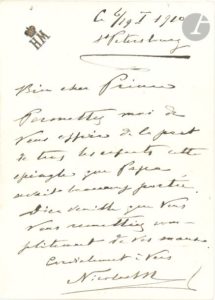 HM
Ce 6/19 I 1910
St Petersburg
Bien cher Prince
Permettez moi de
Vous offrir de la part
de tous les enfants cette
épingle que Papa
avait beaucoup portée.
Dieu veuille que Vous
Vous remettiez com-
plètement de vos maux.
Cordialement à Vous
Nicolas M